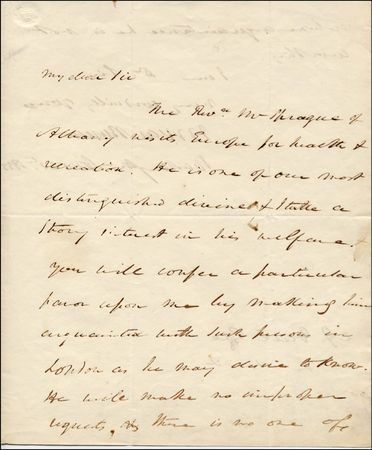 My dear Sir
The Revd. Mr Sprague of
Albany visits Europe for health &
recreation. He is one of our most
distinguished divines & I take a
strong interest in his welfare.
You will confer a particular
favor upon me by making him
acquainted with such persons in
London as he may desire to know.
He will make no improper
requests, & there is no one of